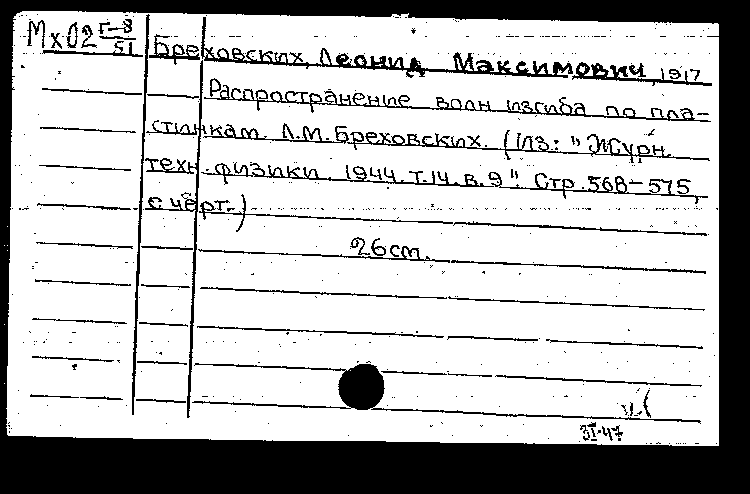 Мх02 Г-8/51
Бреховских, Леонид Максимович, 1917
Распространение волн изгиба по пла-
стинкам. Л.М. Бреховских. (Из: "Журн.
техн. физики. 1944. т. 14. в. 9". Стр. 568-575,
с черт.)
26 см.